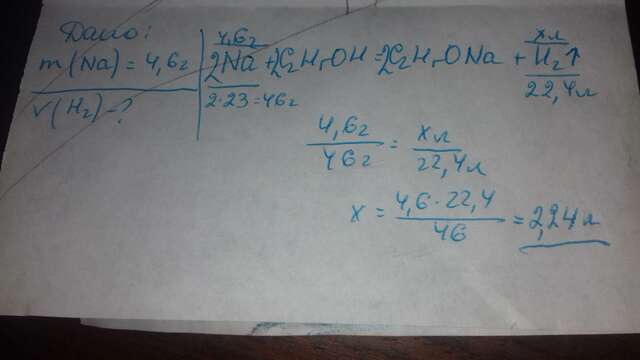 Дано:
m(Na) = 4,6г
V(H₂) - ?
4,6г хл
2Na + 2C₂H₅OH = 2C₂H₅ONa + H₂↑
2·23=46г 22,4л
4,6г / 46г = хл / 22,4л
x = 4,6·22,4 / 46 = 2,24л